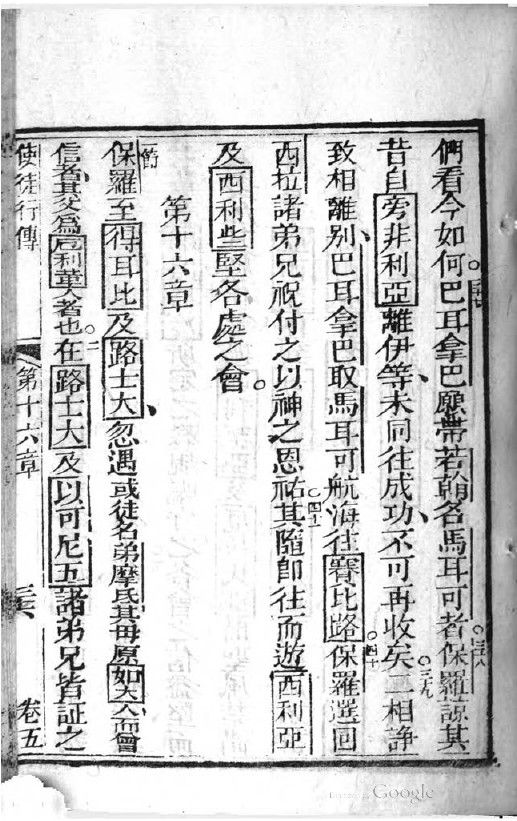 們看今如何。三七巴耳拿巴願帶若翰名馬耳可者。三八保羅諒其
昔自旁非利亞離伊等、未同往成功、不可再收矣。三九二相諍
致相離别、巴耳拿巴取馬耳可航海往賽比路。四十保羅選回
西拉諸弟兄祝付之以神之恩祐。四十一其隨卽往而遊西利亞
及西利些堅各處之會。
第十六章
節
保羅至得耳比及路士大、忽遇或徒名弟摩氐、其母原如大人而會
信者、其父為厄利革人者也。二在路士大及以可尼五諸弟兄皆証之
使徒行傳
第十六章
三六
卷五
Google